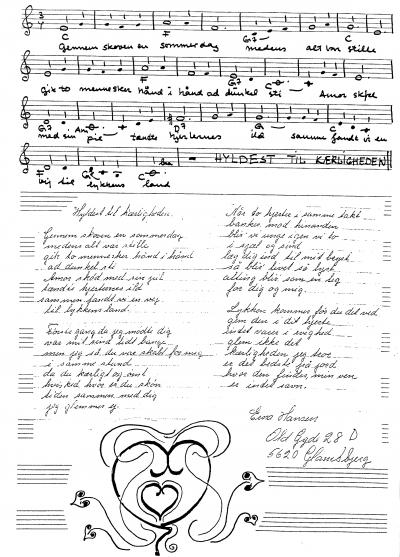 C F G7 C
Gennem skoven en sommerdag medens alt var stille
F G7 C
gik to mennesker hånd i hånd ad dunkel sti Amor skjøt
G7 Am D7 G7
med sin pil tændte hjerternes ild sammen fandt vi en
F G7 C
vej til lykkens land
- HYLDEST TIL KÆRLIGHEDEN
Hyldest til kærligheden.
Gennem skoven en sommerdag
medens alt var stille
gik to mennesker hånd i hånd
ad dunkel sti
Amor skød med sin pil
tændte hjerternes ild
sammen fandt vi en vej
til lykkens land.
Første gang da jeg mødte dig
var mit sind lidt bange
men jeg så, du var skabt for mig
i samme stund
du du kærligt og ømt
hvisked hvor er du skøn
tiden sammen med dig
jeg glemmer ej.
Når to hjerter i samme takt
banker mod hinanden
blir vi unge igen vi to
i sjæl og sind
læg dig ind til mit bryst
så blir livet så lyst
alting blir som en leg
for dig og mig.
Lykken kommer før du det ved
glem den i dit hjerte
intet varer i evighed
glem ikke det
kærligheden jeg tror
er det bedste på jord
hvor den finder min ven
er intet savn.
Ewa Hansen
Old Gyde 28 D
5620 Glamsbjerg